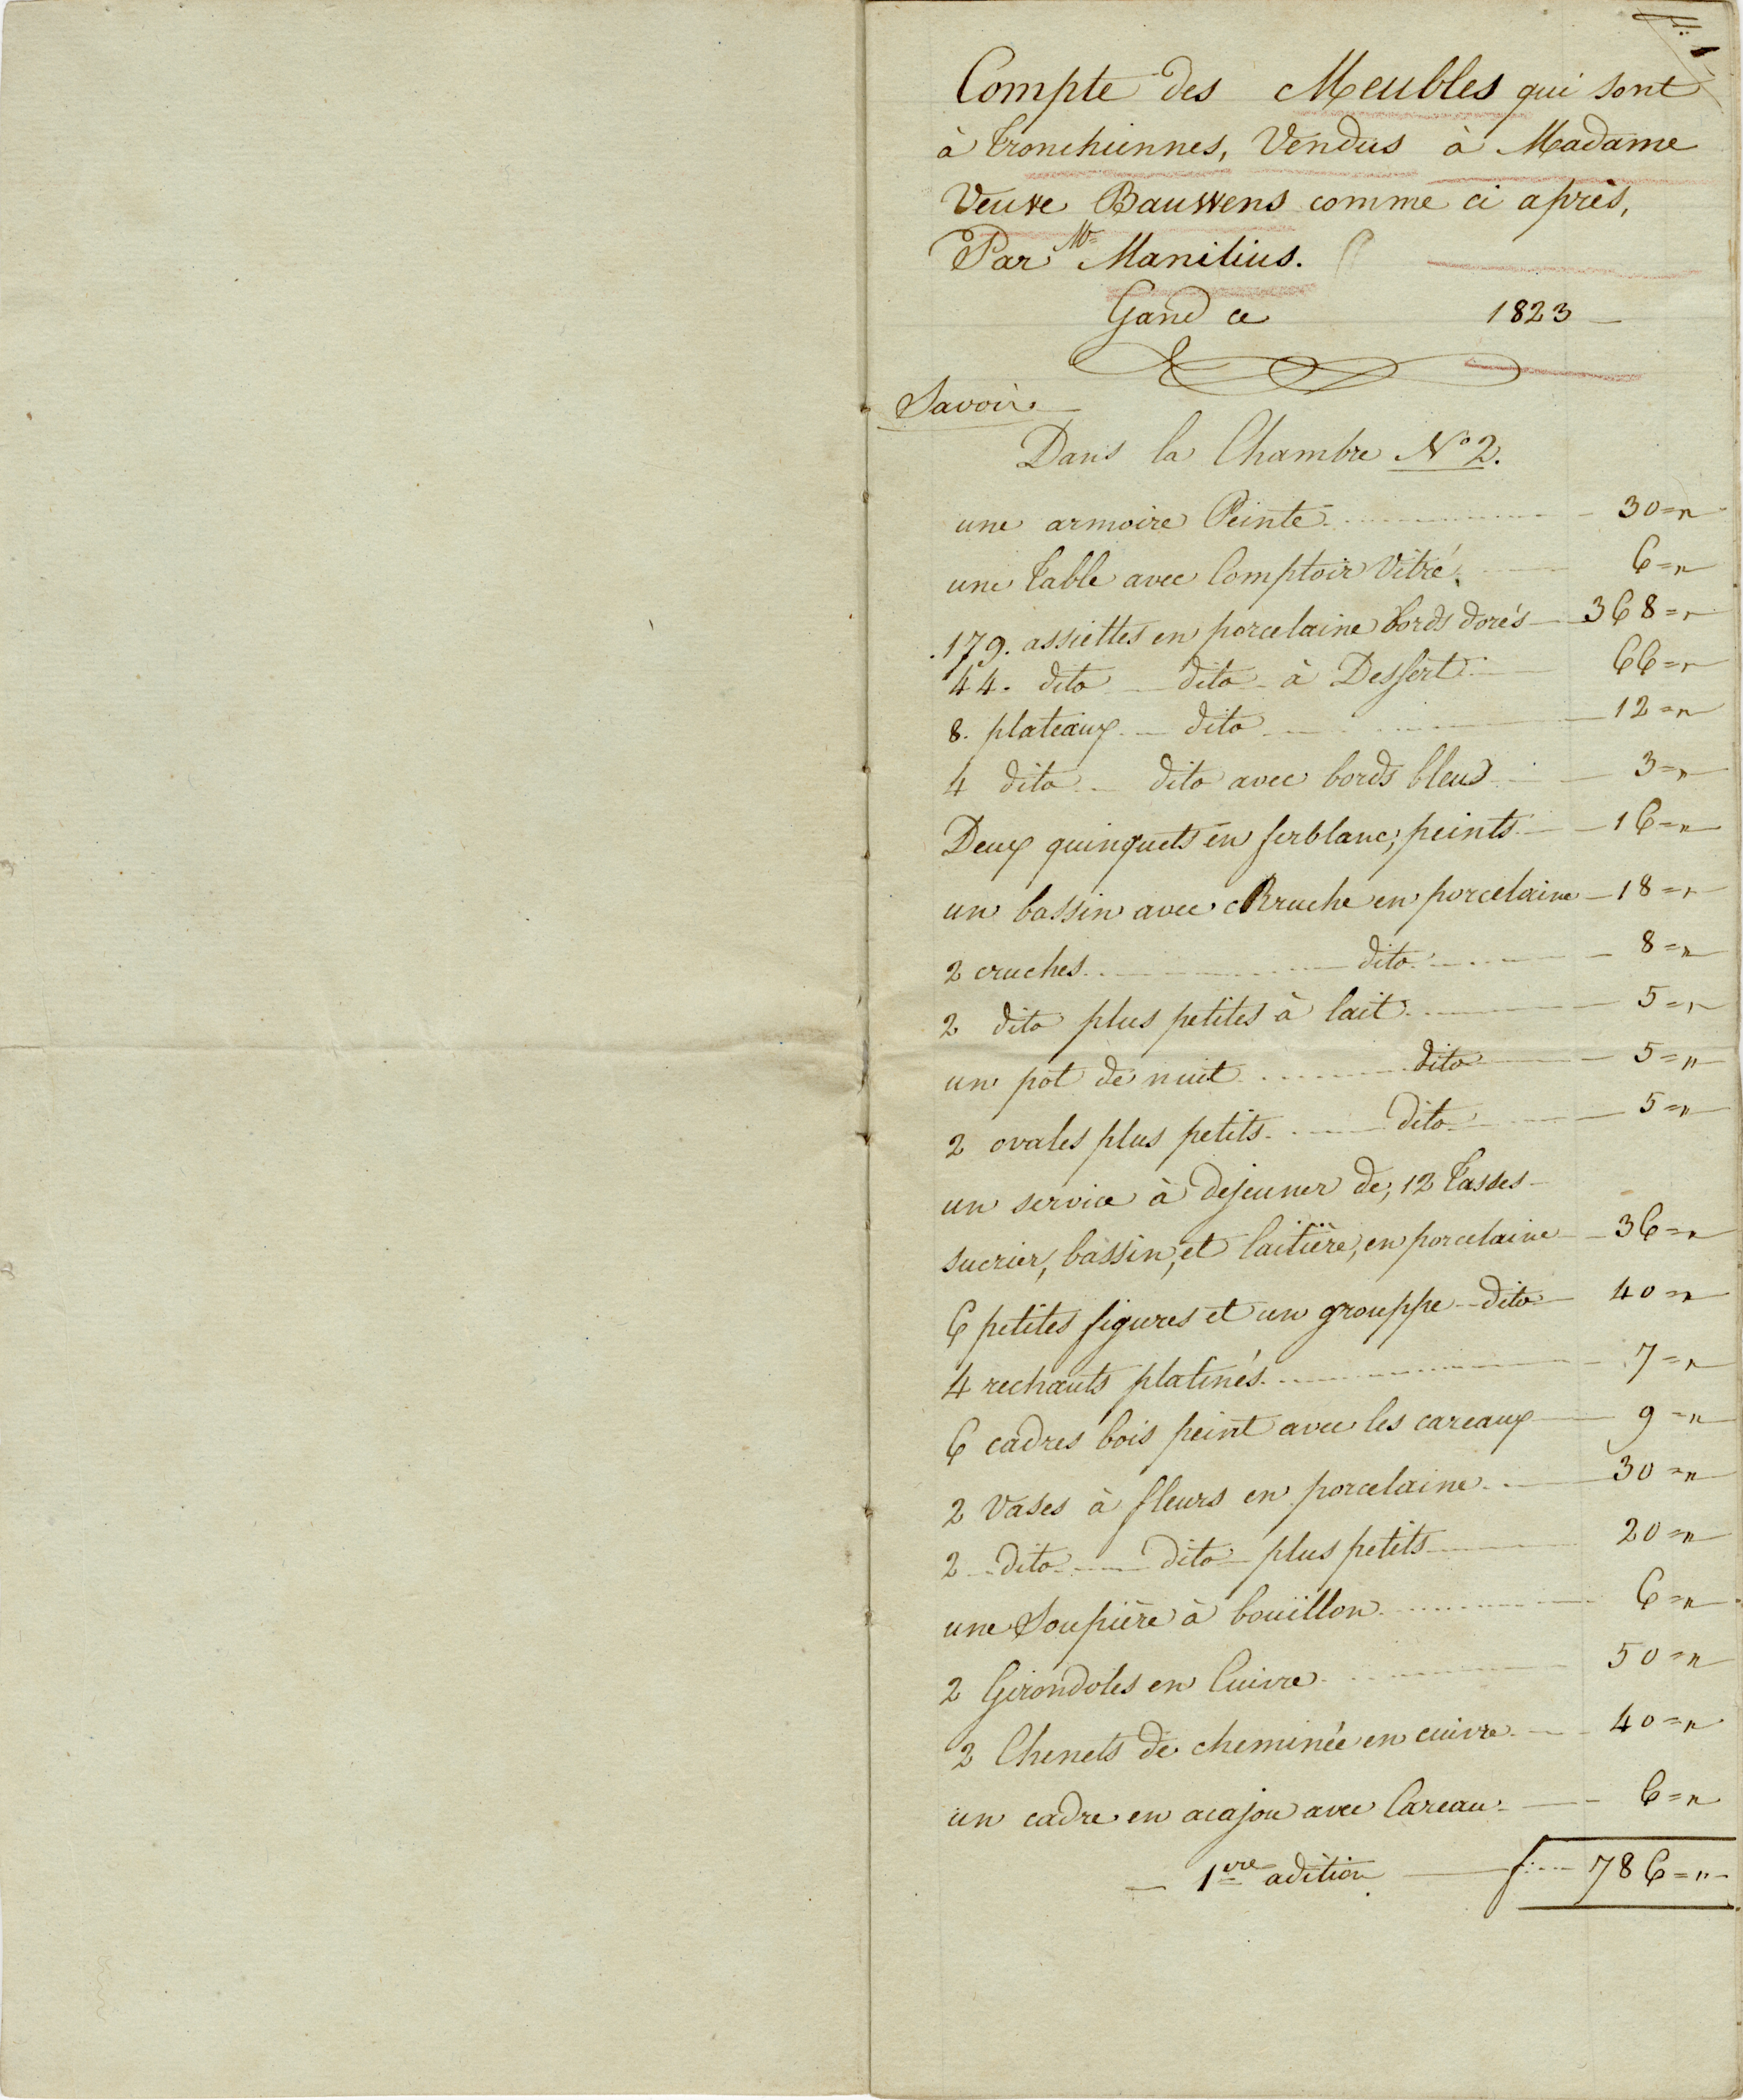 F: 1
Compte des Meubles qui sont
à Tronchiennes, Vendus à Madame
Veuve Bauwens comme ci après,
Par Mr Manilius.
Gand ce 1823
Savoir
Dans la Chambre No 2.
une armoire Peinte 30 = "
une Table avec Comptoir Vitré. 6 = "
179. assiettes en porcelaine bords dorés 368 = "
44. dito dito à Dessert 66 = "
8. plateaux dito 12 = "
4 dito dito avec bords bleus 3 = "
Deux quinquets en ferblanc; peints 16 = "
un bassin avec cRruche en porcelaine 18 = "
2 cruches dito 8 = "
2 dito plus petites à lait 5 = "
un pot de nuit dito 5 = "
2 ovales plus petits dito 5 = "
un service à dejeuner de; 12 Tasses
sucrier, bassin, et laitière, en porcelaine 36 = "
6 petites figures et un grouppe dito 40 = "
4 rechauts platinés 7 = "
6 cadres bois peint avec les careaux 9 = "
2 Vases à fleurs en porcelaine 30 = "
2 dito dito plus petits 20 = "
une Soupière à bouillon 6 = "
2 Girondoles en Cuivre 50 = "
2 Chenets de cheminée en cuivre 40 = "
un cadre en acajou avec Careau 6 = "
1ere adition f: 786 = "